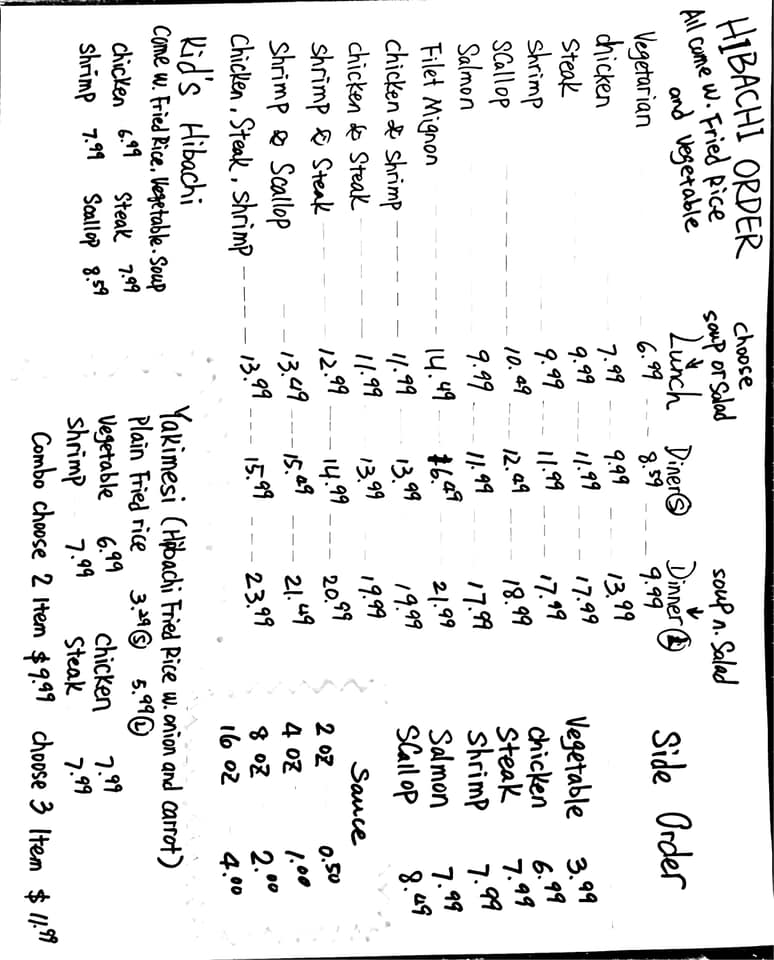 HIBACHI ORDER
All come w. Fried Rice
and Vegetable
choose
soup or Salad
soup n. Salad
Lunch Diner(S) Dinner(L)
Vegetarian 6.99 --- 8.59 --- 9.99
chicken 7.99 9.99 13.99
Steak 9.99 --- 11.99 --- 17.99
Shrimp 9.99 --- 11.99 --- 17.99
Scallop ------ 10.49 --- 12.49 --- 18.99
Salmon 9.99 --- 11.99 --- 17.99
Filet Mignon ------ 14.49 16.49 21.99
Chicken & Shrimp ----- 11.99 --- 13.99 19.99
Chicken & Steak --- 11.99 13.99 19.99
Shrimp & Steak --- 12.99 --- 14.99 --- 20.99
Shrimp & Scallop -- 13.49 --- 15.49 --- 21.49
Chicken, Steak, Shrimp ----- 13.99 --- 15.99 --- 23.99
Side Order
Vegetable 3.99
chicken 6.99
Steak 7.99
Shrimp 7.99
Salmon 7.99
Scallop 8.49
Sauce
2 oz 0.50
4 oz 1.00
8 oz 2.00
16 oz 4.00
Kid's Hibachi
Come w. Fried Rice, Vegetable. Soup
chicken 6.99 Steak 7.99
Shrimp 7.99 Scallop 8.59
Yakimesi (Hibachi Fried Rice w. onion and carrot)
Plain Fried rice 3.29(S) 5.99(L)
Vegetable 6.99 chicken 7.99
Shrimp 7.99 Steak 7.99
Combo choose 2 Item $9.99 choose 3 Item $11.99